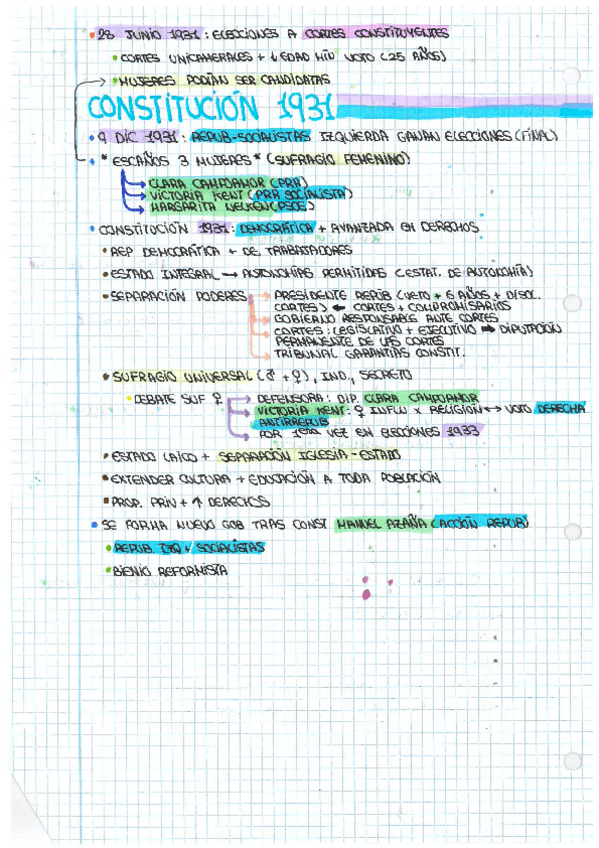 • 28 JUNIO 1931: ELECCIONES A CORTES CONSTITUYENTES
• CORTES UNICAMERALES + ↓ EDAD MÍN VOTO (25 AÑOS)
• MUJERES PODÍAN SER CANDIDATAS
CONSTITUCIÓN 1931
• 9 DIC 1931: REPUB-SOCIALISTAS IZQUIERDA GANAN ELECCIONES (FINAL)
• * ESCAÑOS 3 MUJERES * (SUFRAGIO FEMENINO)
CLARA CAMPOAMOR (PRR)
VICTORIA KENT (PRR SOCIALISTA)
MARGARITA NELKEN (PSOE)
• CONSTITUCIÓN 1931: DEMOCRÁTICA + AVANZADA EN DERECHOS
• REP DEMOCRÁTICA + DE TRABAJADORES
• ESTADO INTEGRAL → AUTONOMÍAS PERMITIDAS (ESTAT. DE AUTONOMÍA)
• SEPARACIÓN PODERES → PRESIDENTE REPÚB (VETO + 6 AÑOS + DISOL.
CORTES) ← CORTES + COMPROMISARIOS
GOBIERNO RESPONSABLE ANTE CORTES
CORTES: LEGISLATIVO + EJECUTIVO → DIPUTACIÓN
PERMANENTE DE LAS CORTES
TRIBUNAL GARANTÍAS CONSTIT.
• SUFRAGIO UNIVERSAL (♂ + ♀), IND., SECRETO
• DEBATE SUF ♀ → DEFENSORA: DIP. CLARA CAMPOAMOR
VICTORIA KENT: ♀ INFLU X RELIGIÓN ↔ VOTO DERECHA
ANTIRREPUB
POR 1ERA VEZ EN ELECCIONES 1933
• ESTADO LAICO + SEPARACIÓN IGLESIA-ESTADO
• EXTENDER CULTURA + EDUCACIÓN A TODA POBLACIÓN
• PROP. PRIV + ↑ DERECHOS
• SE FORMA NUEVO GOB TRAS CONST MANUEL AZAÑA (ACCIÓN REPUB)
• REPUB. IZQ + SOCIALISTAS
• BIENIO REFORMISTA